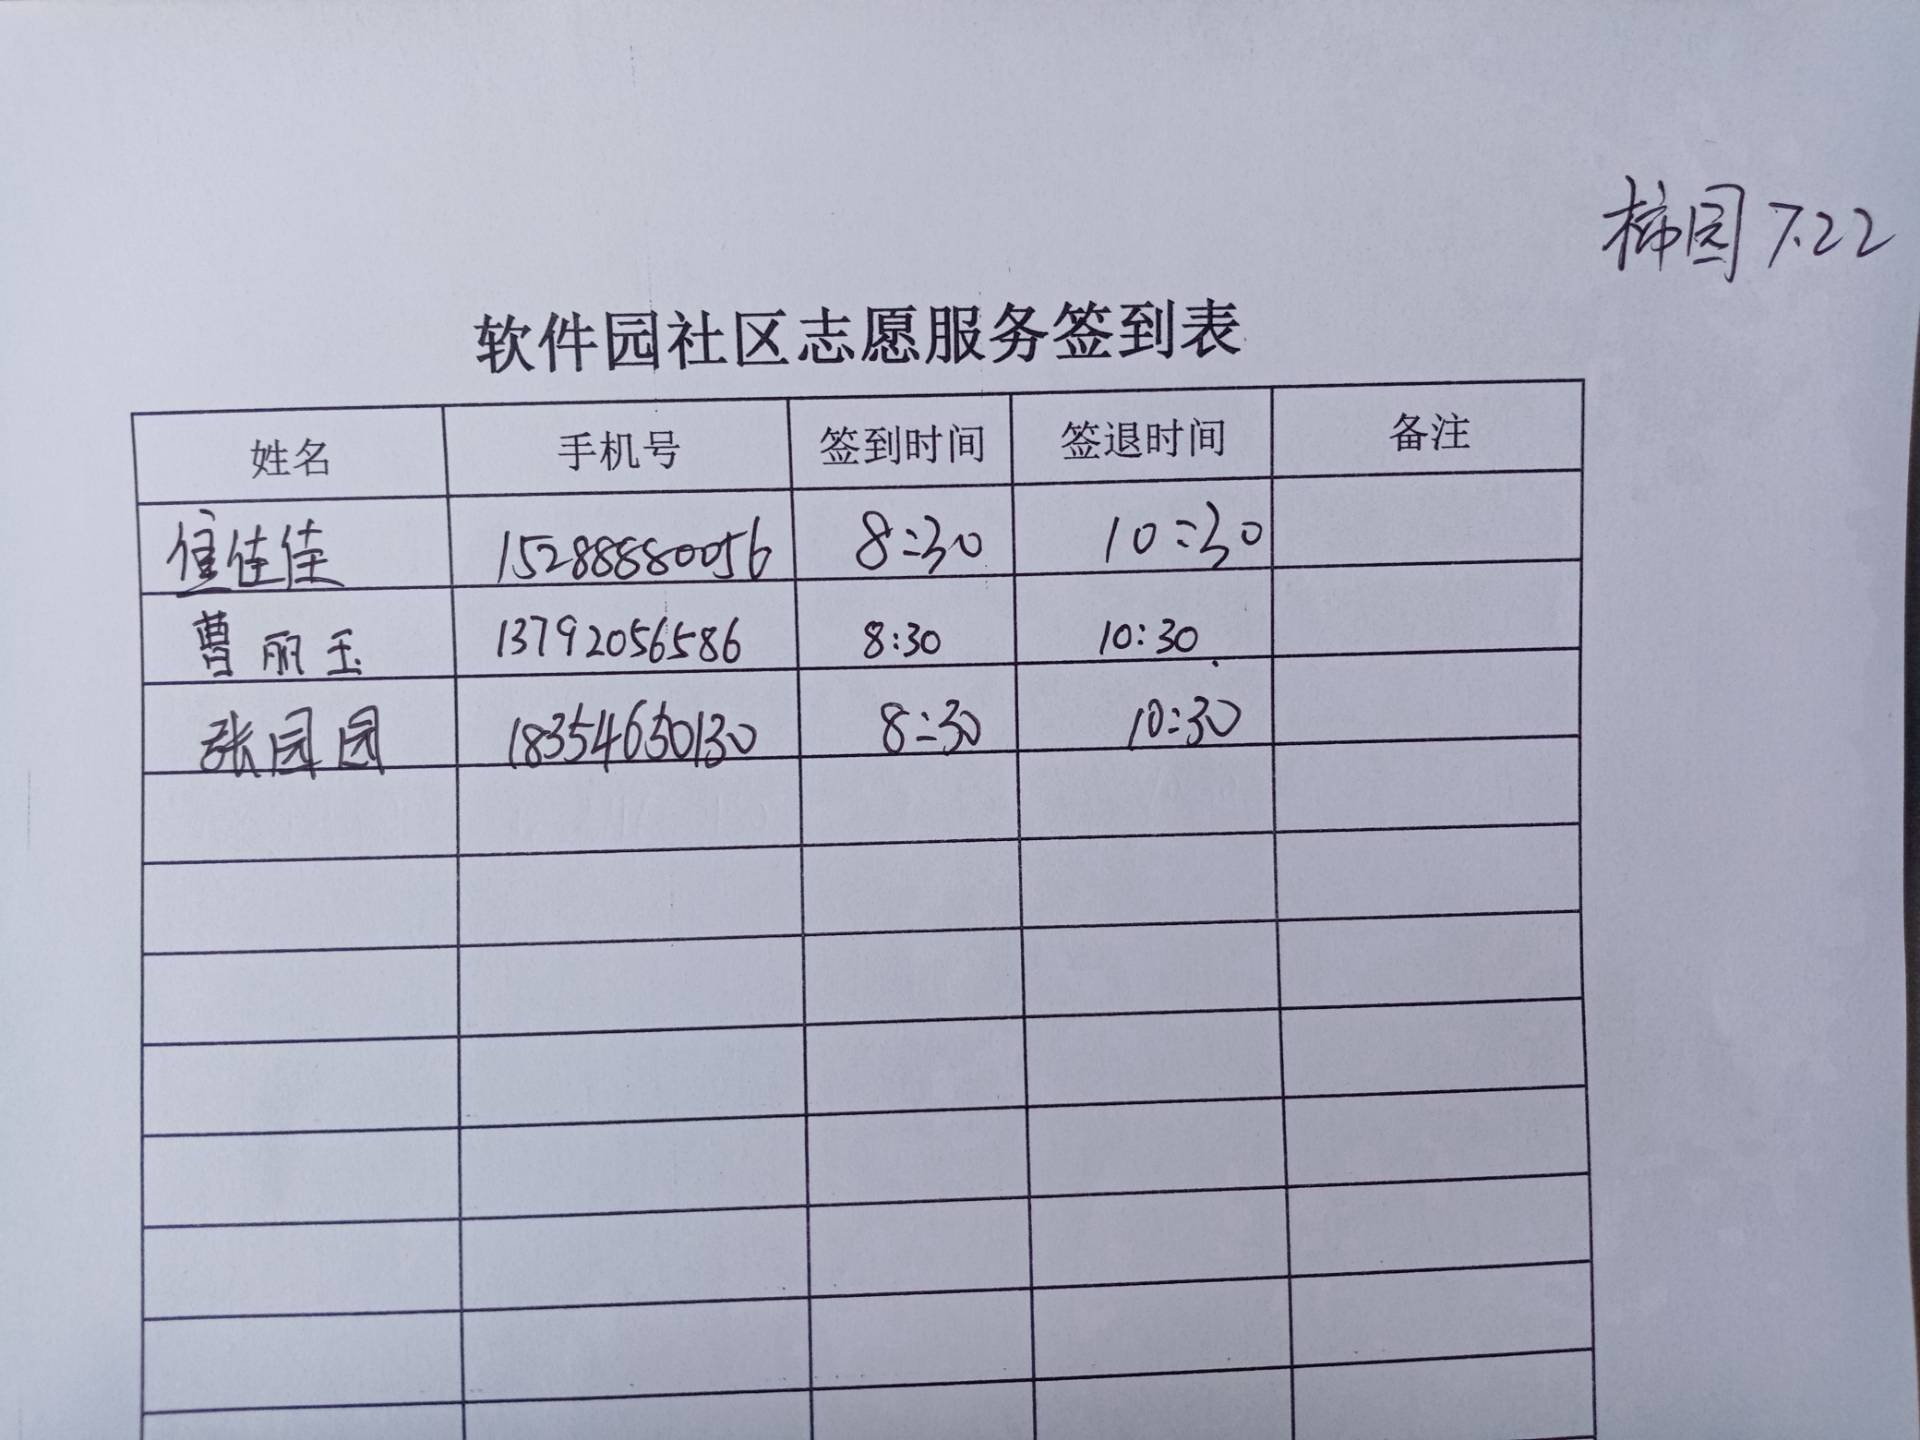 柿园 7.22
软件园社区志愿服务签到表
姓名 手机号 签到时间 签退时间 备注
佳佳 15288880056 8:30 10:30
曹丽玉 13792056586 8:30 10:30
张园园 18354650130 8:30 10:30